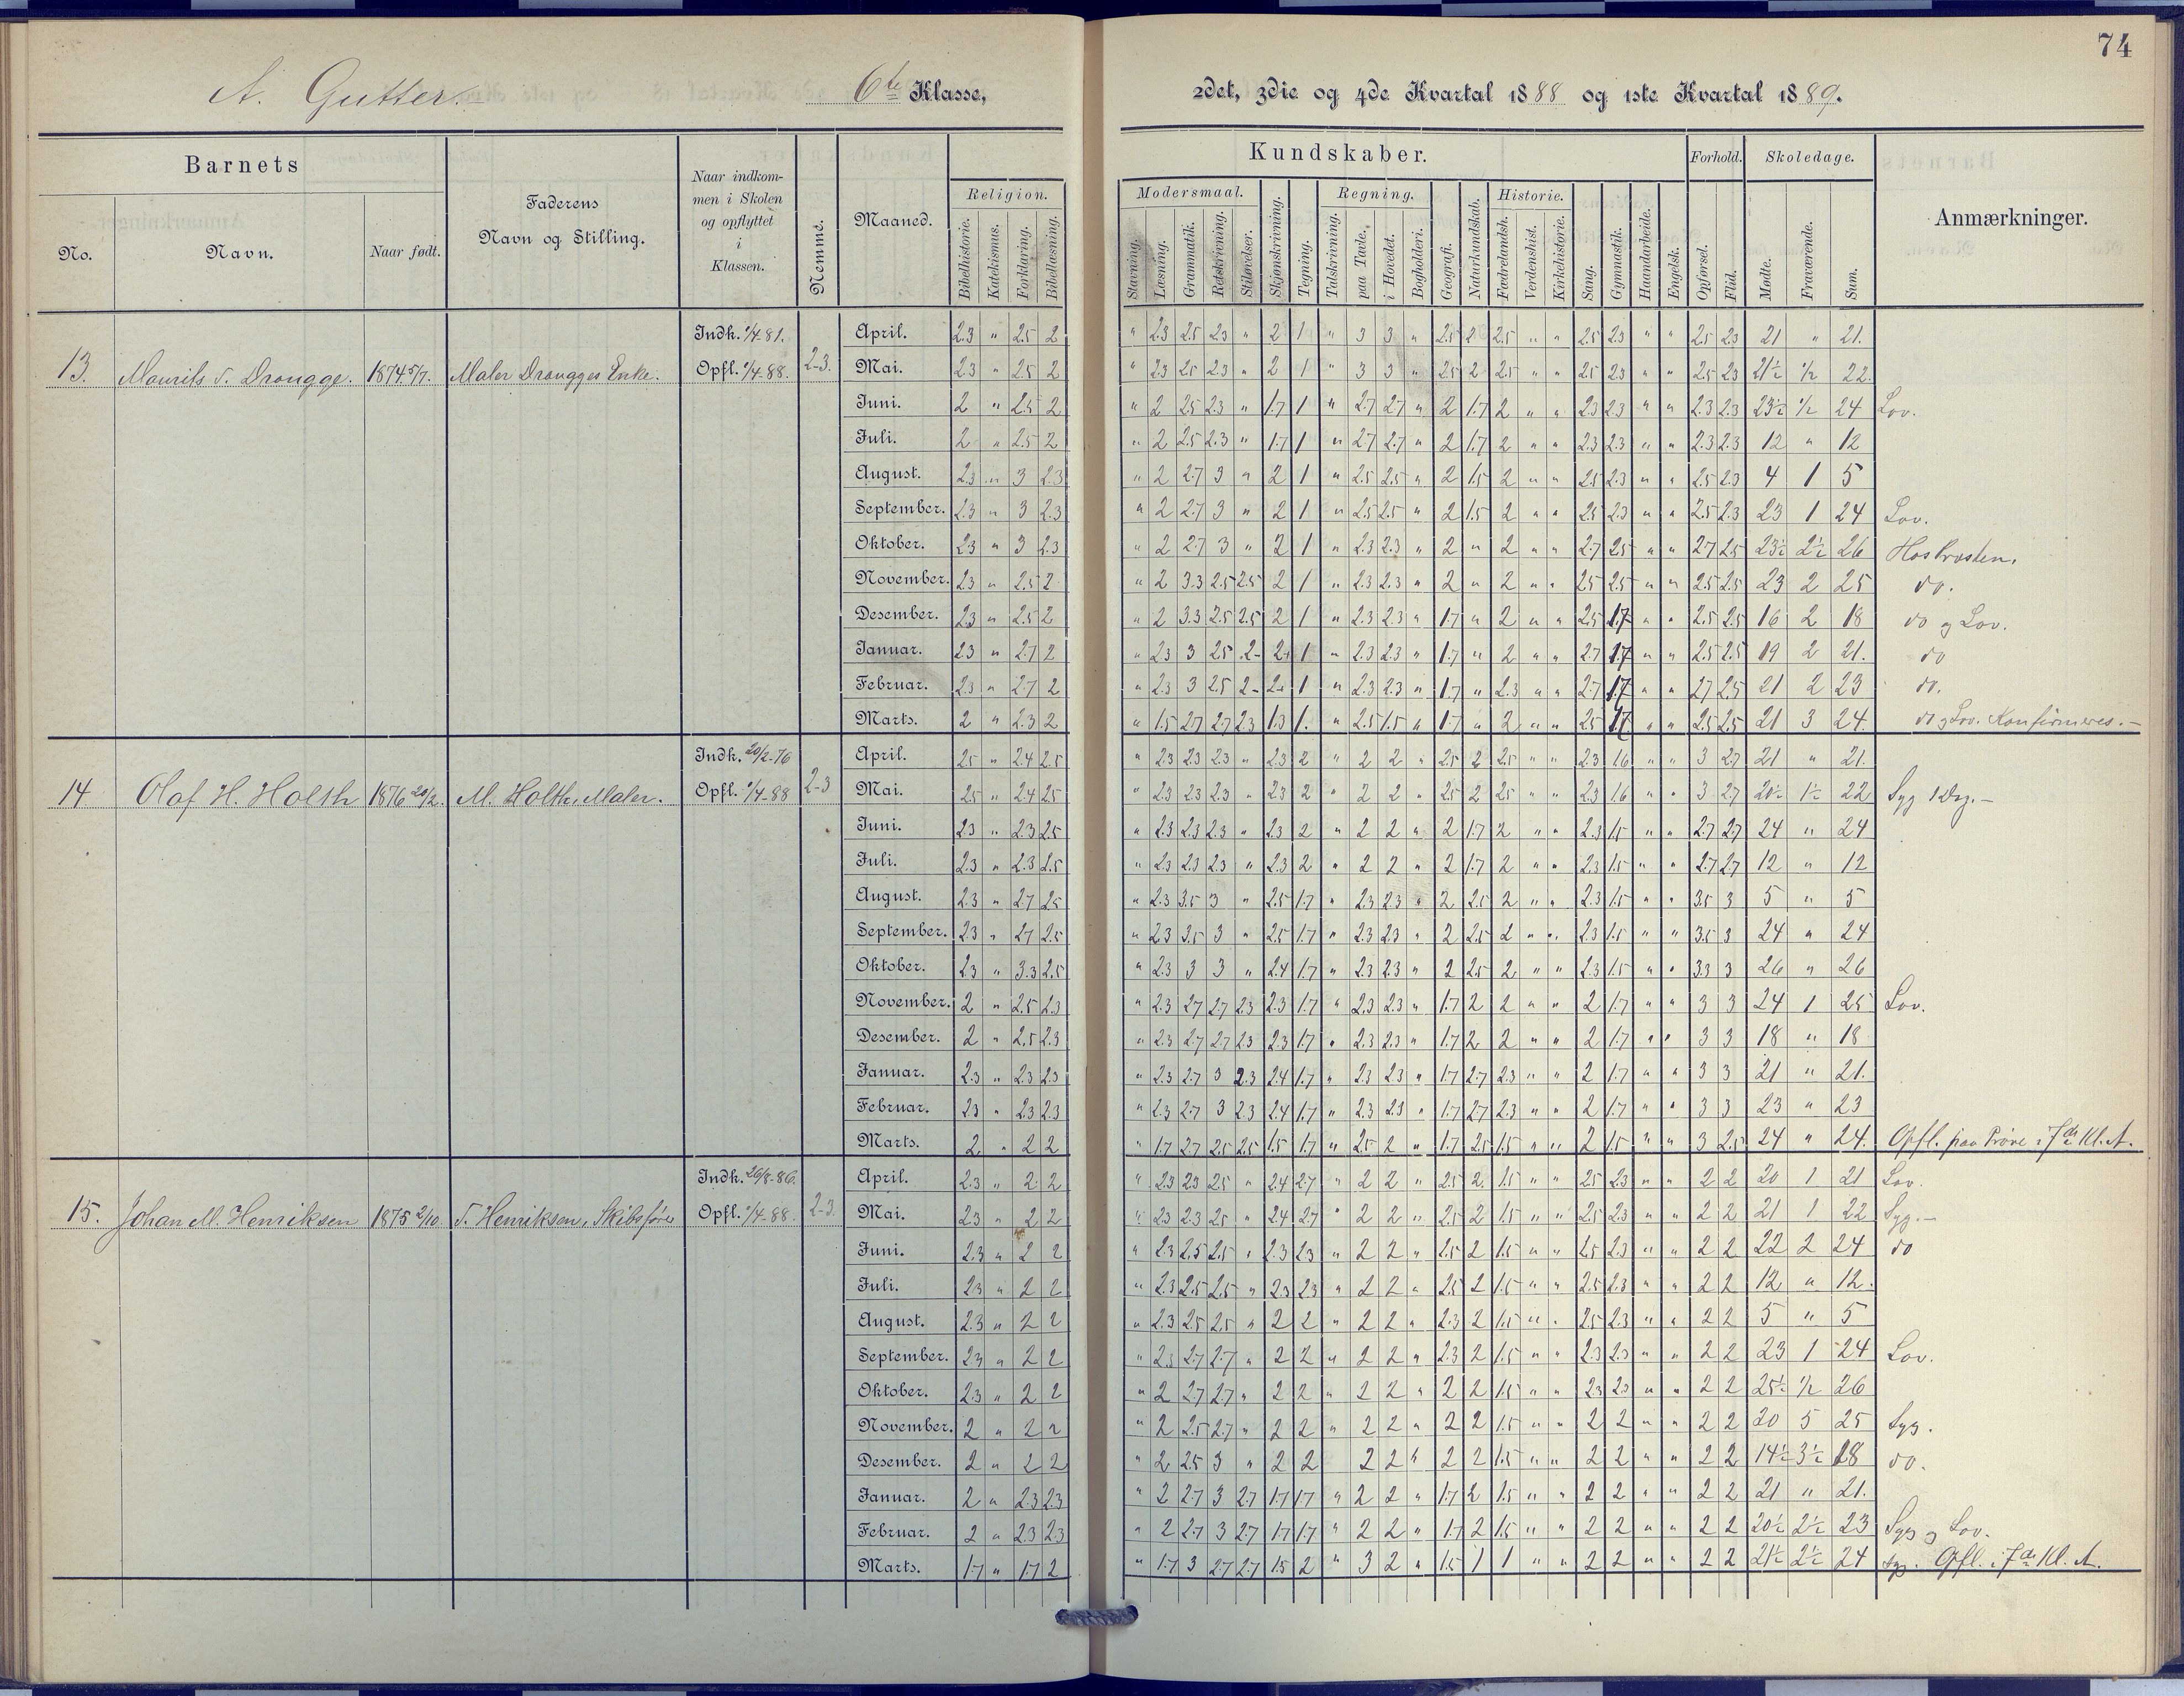 74
A. Gutter. 6te Klasse, 2det, 3die og 4de Kvartal 1888 og 1ste Kvartal 1889.
Barnets
No.
Navn.
Naar født.
Faderens
Navn og Stilling.
Naar indkom-
men i Skolen
og opflyttet
i
Klassen.
Nemme.
Maaned.
Kundskaber.
Religion.
Bibelhistorie. Katekismus. Forklaring. Bibellæsning.
Modersmaal.
Slavning. Læsning. Grammatik. Retskrivning. Stiløvelser.
Skjønskrivning. Tegning.
Regning.
Talskrivning. paa Tavle. i Hovedet. Bogholderi.
Geografi. Naturkundskab.
Historie.
Fædrelandsh. Verdenshist. Kirkehistorie.
Sang. Gymnastik. Haandarbeide. Engelsk.
Forhold.
Opførsel. Flid.
Skoledage.
Mødte. Fraværende. Sum.
Anmærkninger.
13. Maurits S. Drougge. 1874 5/7. Maler Drougges Enke. Indk. 1/4 81. Opfl. 1/4-88. 2-3.
April. 2.3 " 2.5 2 " 2.3 2.5 2.3 " 2 1 " 3 3 " 2.5 2 2.5 " " 2.5 2.3 " " 2.5 2.3 21 " 21.
Mai. 2.3 " 2.5 2 " 2.3 2.5 2.3 " 2 1 " 3 3 " 2.5 2 2.5 " " 2.5 2.3 " " 2.5 2.3 21½ ½ 22.
Juni. 2 " 2.5 2 " 2 2.5 2.3 " 1.7 1 " 2.7 2.7 " 2 1.7 2 " " 2.3 2.3 " " 2.3 2.3 23½ ½ 24 Lov.
Juli. 2 " 2.5 2 " 2 2.5 2.3 " 1.7 1 " 2.7 2.7 " 2 1.7 2 " " 2.3 2.3 " " 2.3 2.3 12 " 12
August. 2.3 " 3 2.3 " 2 2.7 3 " 2 1 " 2.5 2.5 " 2 1.5 2 " " 2.5 2.3 " " 2.5 2.3 4 1 5
September. 2.3 " 3 2.3 " 2 2.7 3 " 2 1 " 2.5 2.5 " 2 1.5 2 " " 2.5 2.3 " " 2.5 2.3 23 1 24 Lov.
Oktober. 2.3 " 3 2.3 " 2 2.7 3 " 2 1 " 2.3 2.3 " 2 " 2 " " 2.7 2.5 " " 2.7 2.5 23½ 2½ 26 Hos Prosten.
November. 2.3 " 2.5 2 " 2 3.3 2.5 2.5 2 1 " 2.3 2.3 " 2 " 2 " " 2.5 2.5 " " 2.5 2.5 23 2 25 do.
Desember. 2.3 " 2.5 2 " 2 3.3 2.5 2.5 2 1 " 2.3 2.3 " 1.7 " 2 " " 2.5 1.7 " " 2.5 2.5 16 2 18 do og Lov.
Januar. 2.3 " 2.7 2 " 2.3 3 2.5 2- 2+ 1 " 2.3 2.3 " 1.7 " 2 " " 2.7 1.7 " " 2.5 2.5 19 2 21. do
Februar. 2.3 " 2.7 2 " 2.3 3 2.5 2- 2+ 1 " 2.3 2.3 " 1.7 " 2.3 " " 2.7 1.7 " " 2.7 2.5 21 2 23 do.
Marts. 2 " 2.3 2 " 1.5 2.7 2.7 2.3 1.3 1. " 2.5 1.5 " 1.7 " 2 " " 2.5 1.7 " " 2.5 2.5 21 3 24. do og Lov. Konfirmeres.-
14 Olaf H. Holth 1876 20/2. M. Holth, Maler. Indk. 20/2-76 Opfl. 1/4-88 2-3
April. 2.5 " 2.4 2.5 " 2.3 2.3 2.3 " 2.3 2 " 2 2 " 2.5 2 2.5 " " 2.3 1.6 " " 3 2.7 21 " 21.
Mai. 2.5 " 2.4 2.5 " 2.3 2.3 2.3 " 2.3 2 " 2 2 " 2.5 2 2.5 " " 2.3 1.6 " " 3 2.7 20½ 1½ 22 Syg 1 Dag.-
Juni. 2.3 " 2.3 2.5 " 2.3 2.3 2.3 " 2.3 2 " 2 2 " 2 1.7 2 " " 2.3 1.5 " " 2.7 2.7 24 " 24
Juli. 2.3 " 2.3 2.5 " 2.3 2.3 2.3 " 2.3 2 " 2 2 " 2 1.7 2 " " 2.3 1.5 " " 2.7 2.7 12 " 12
August. 2.3 " 2.7 2.5 " 2.3 3.5 3 " 2.5 1.7 " 2.3 2.3 " 2 2.5 2 " " 2.3 1.5 " " 3.5 3 5 " 5
September. 2.3 " 2.7 2.5 " 2.3 3.5 3 " 2.5 1.7 " 2.3 2.3 " 2 2.5 2 " " 2.3 1.5 " " 3.5 3 24 " 24
Oktober. 2.3 " 3.3 2.5 " 2.3 3 3 " 2.4 1.7 " 2.3 2.3 " 2 2.5 2 " " 2.3 1.5 " " 3.3 3 26 " 26
November. 2 " 2.5 2.3 " 2.3 2.7 2.7 2.3 2.3 1.7 " 2.3 2.3 " 1.7 2 2 " " 2 1.7 " " 3 3 24 1 25 Lov.
Desember. 2 " 2.5 2.3 " 2.3 2.7 2.7 2.3 2.3 1.7 " 2.3 2.3 " 1.7 2 2 " " 2 1.7 " " 3 3 18 " 18
Januar. 2.3 " 2.3 2.3 " 2.3 2.7 3 2.3 2.4 1.7 " 2.3 2.3 " 1.7 2.7 2.3 " " 2 1.7 " " 3 3 21 " 21.
Februar. 2.3 " 2.3 2.3 " 2.3 2.7 3 2.3 2.4 1.7 " 2.3 2.3 " 1.7 2.7 2.3 " " 2 1.7 " " 3 3 23 " 23
Marts. 2 " 2 2 " 1.7 2.7 2.5 2.5 1.5 1.7 " 2.5 2 " 1.7 2.5 1.5 " " 2 1.5 " " 3 2.5 24 " 24. Opfl. paa Prøve i 7de Kl. A.
15. Johan M. Henriksen 1875 2/10. S. Henriksen, Skibsfører Indk. 26/8-86. Opfl. 1/4-88. 2-3.
April. 2.3 " 2 2 " 2.3 2.3 2.5 " 2.4 2.7 " 2 2 " 2.5 2 1.5 " " 2.5 2.3 " " 2 2 20 1 21 Lov.
Mai. 2.3 " 2 2 " 2.3 2.3 2.5 " 2.4 2.7 " 2 2 " 2.5 2 1.5 " " 2.5 2.3 " " 2 2 21 1 22 Syg.-
Juni. 2.3 " 2 2 " 2.3 2.5 2.5 " 2.3 2.3 " 2 2 " 2.5 2 1.5 " " 2.5 2.3 " " 2 2 22 2 24 do
Juli. 2.3 " 2 2 " 2.3 2.5 2.5 " 2.3 2.3 " 2 2 " 2.5 2 1.5 " " 2.5 2.3 " " 2 2 12 " 12.
August. 2.3 " 2 2 " 2.3 2.5 2.5 " 2 2 " 2 2 " 2.3 2 1.5 " " 2.5 2.3 " " 2 2 5 " 5
September. 2.3 " 2 2 " 2.3 2.7 2.7 " 2 2 " 2 2 " 2.3 2 1.5 " " 2.3 2.3 " " 2 2 23 1 24 Lov.
Oktober. 2.3 " 2 2 " 2 2.7 2.7 " 2 2 " 2 2 " 2 2 1.5 " " 2.3 2.3 " " 2 2 25½ ½ 26
November. 2 " 2 2 " 2 2.5 2.7 " 2 2 " 2 2 " 2 2 1.5 " " 2 2 " " 2 2 20 5 25 Syg.
Desember. 2 " 2 2 " 2 2.5 3 " 2 2 2 2 " 2 2 1.5 " " 2 2 " " 2 2 14½ 3½ 18 do.
Januar. 2 " 2.3 2.3 " 2 2.7 3 2.7 1.7 1.7 " 2 2 " 1.7 2 1.5 " " 2 2 " " 2 2 21 " 21.
Februar. 2 " 2.3 2.3 " 2 2.7 3 2.7 1.7 1.7 " 2 2 " 1.7 2 1.5 " " 2 2 " " 2 2 20½ 2½ 23 Syg og Lov.
Marts. 1.7 " 1.7 2 " 1.7 3 2.7 2.7 1.5 2 " 3 2 " 1.5 1 1 " " 2 2 " " 2 2 21½ 2½ 24 Syg. Opfl. i 7de Kl. A.